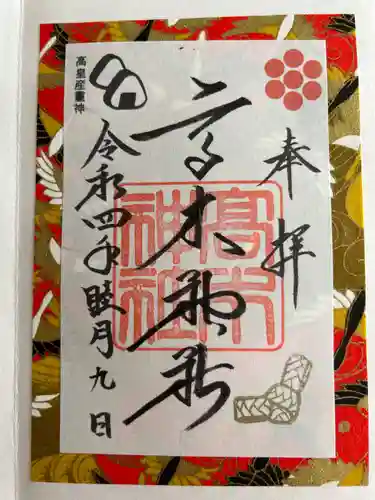 奉拝
高木神社
高木神社
令和四年睦月九日
高皇産霊神